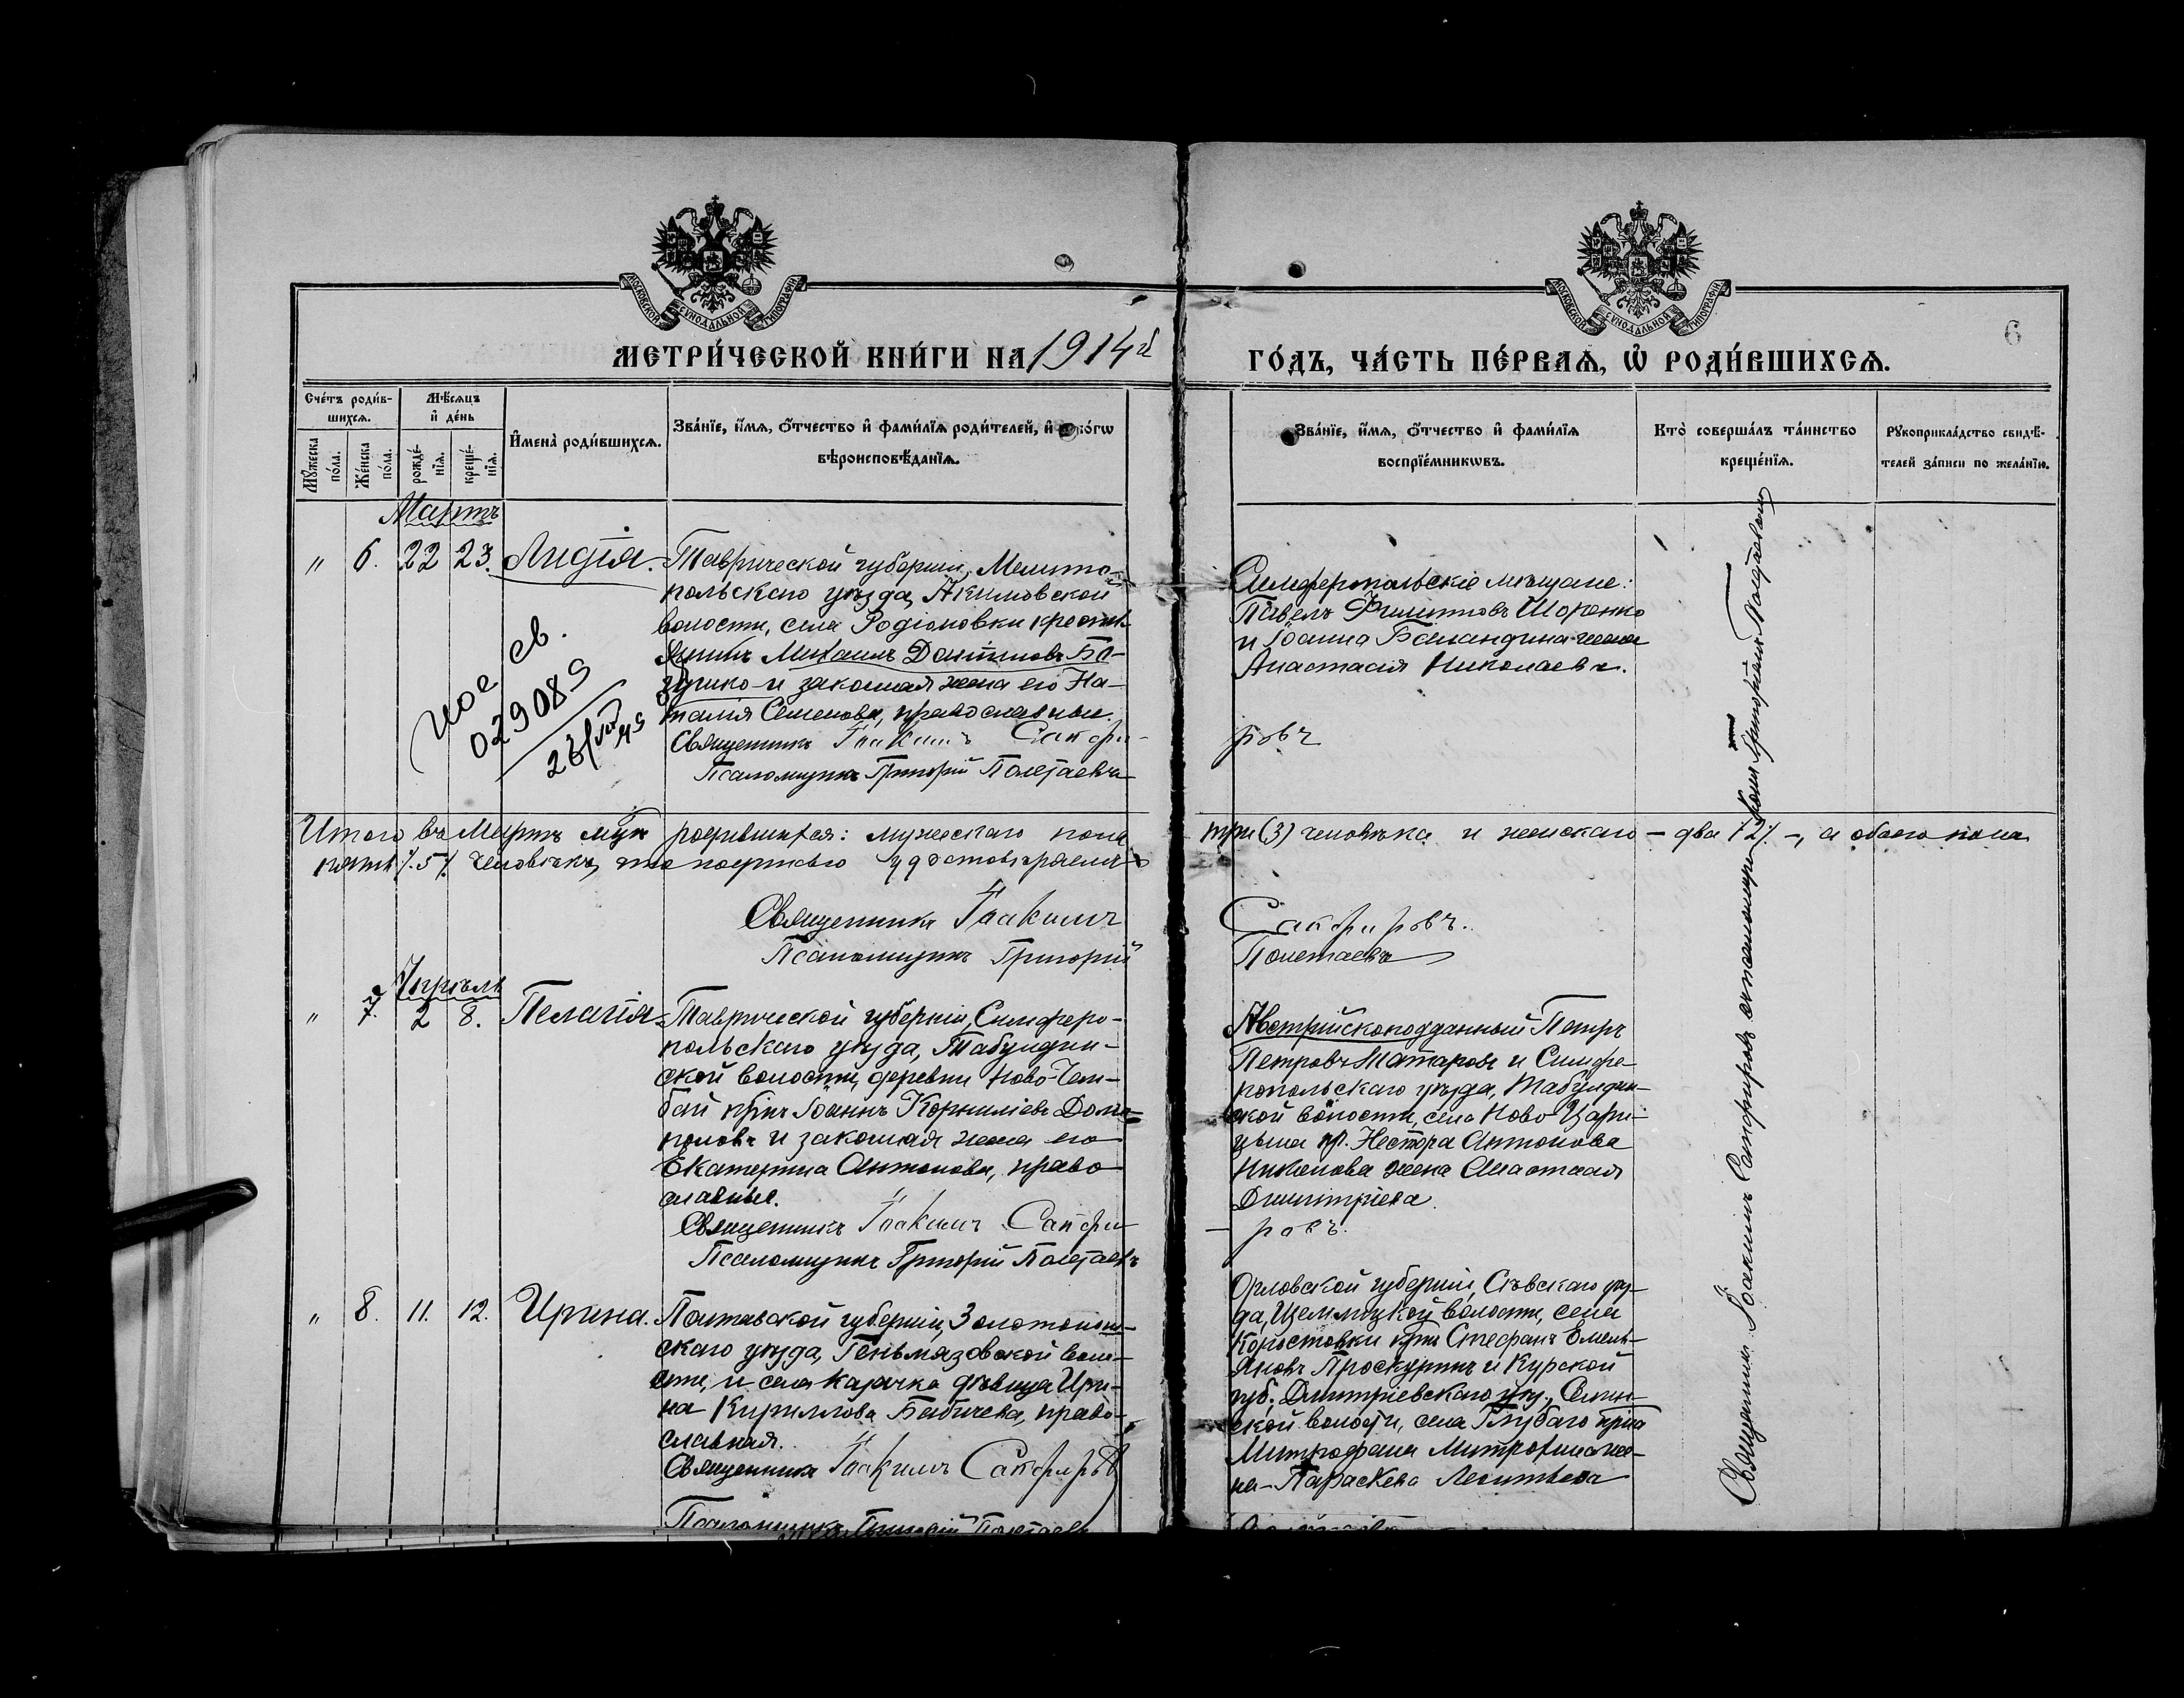 МОСКОВСКОЙ СѴНОДАЛЬНОЙ ТИПОГРАФІИ
МОСКОВСКОЙ СѴНОДАЛЬНОЙ ТИПОГРАФІИ
6
МЕТРИ́ЧЕСКОЙ КНИ́ГИ НА 1914й ГО́ДЪ, ЧА́СТЬ ПЕ́РВАѦ, Ѽ РОДИ́ВШИХСѦ.
Сче́тъ роди́в-
шихсѧ.
Мѣ́сѧцъ
и҆ де́нь
Мꙋ́жеска
по́ла.
Же́нска
по́ла.
рожде́-
нїѧ.
креще́-
нїѧ.
И҆мена̀ роди́вшихсѧ.
Зва́нїе, и҆́мѧ, ѻ҆́тчество и҆ фами́лїѧ роди́телей, и҆ како́гѡ
вѣроисповѣ́данїѧ.
Зва́нїе, и҆́мѧ, ѻ҆́тчество и҆ фами́лїѧ
воспрїе́мникѡвъ.
Кто̀ соверша́лъ та́инство
креще́нїѧ.
Рꙋкоприкла́дство свидѣ́-
телей за́писи по жела́нїю.
Мартъ
" 6. 22 23. Лидія.
Таврической губерніи, Мелито-
польскаго уѣзда, Акимовской
волости, села Родіоновки крестья-
нинъ Михаилъ Даніиловъ
и законная жена его На-
талія Семенова, православные.
Священникъ Іоакимъ Сапфи-
Псаломщикъ Григорій Полетаевъ
029089
Симферопольскіе мѣщане:
Павелъ Филипповъ Шоренко
и Іоанна Баландина жена
Анастасія Николаева.
ровъ
Итого въ Мартѣ м-цѣ родившихся: мужескаго пола три (3) человѣка и женскаго – два /2/. –, а обоего пола
пять /.5/. человѣкъ, что подписью удостовѣряемъ
Священникъ Іоакимъ Сапфировъ.
Псаломщикъ Григорій Полетаевъ
Апрѣль
" 7. 2 8. Пелагія.
Таврической губерніи, Симферо-
польскаго уѣзда, Табулдин-
ской волости, деревни Ново-Чем-
бай крнъ Іоаннъ Корниліевъ Долго-
половъ и законная жена его
Екатерина Антонова, право
славные.
Священникъ Іоакимъ Сапфи-
Псаломщикъ Григорій Полетаевъ
Австрійскоподданный Петръ
Петровъ Матаровъ и Симфе-
ропольскаго уѣзда, Табулдин-
ской волости, села Ново-Цари-
цына кр. Нестора Антонова
Никонова жена Анастасія
Димитріева.
ровъ.
" 8. 11. 12. Ирина.
Полтавской губерніи, Золотонош-
скаго уѣзда, Гельмязовской воло-
сти, и села Каратка дѣвица Ири-
на Кириллова Бабичева, право-
славная.
Священникъ Іоакимъ Сапфировъ
Псаломщикъ Григорій Полетаевъ
Орловской губерніи, Сѣвскаго уѣз-
да, волости, села
Коростовки крнъ Стефанъ Емель-
яновъ Проскуринъ и Курской
губ. Дмитріевскаго уѣз.,
ской волости, села Глубаго крна
Митрофана Митрохина же-
на – Параскева Леонтьева
Священникъ Іоакимъ Сапфировъ съ псаломщикомъ Григоріемъ Полетаевымъ